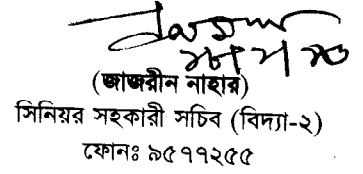 (জাজরীন নাহার)
সিনিয়র সহকারী সচিব (বিদ্যা-২)
ফোনঃ ৯৫৭৭২৫৫